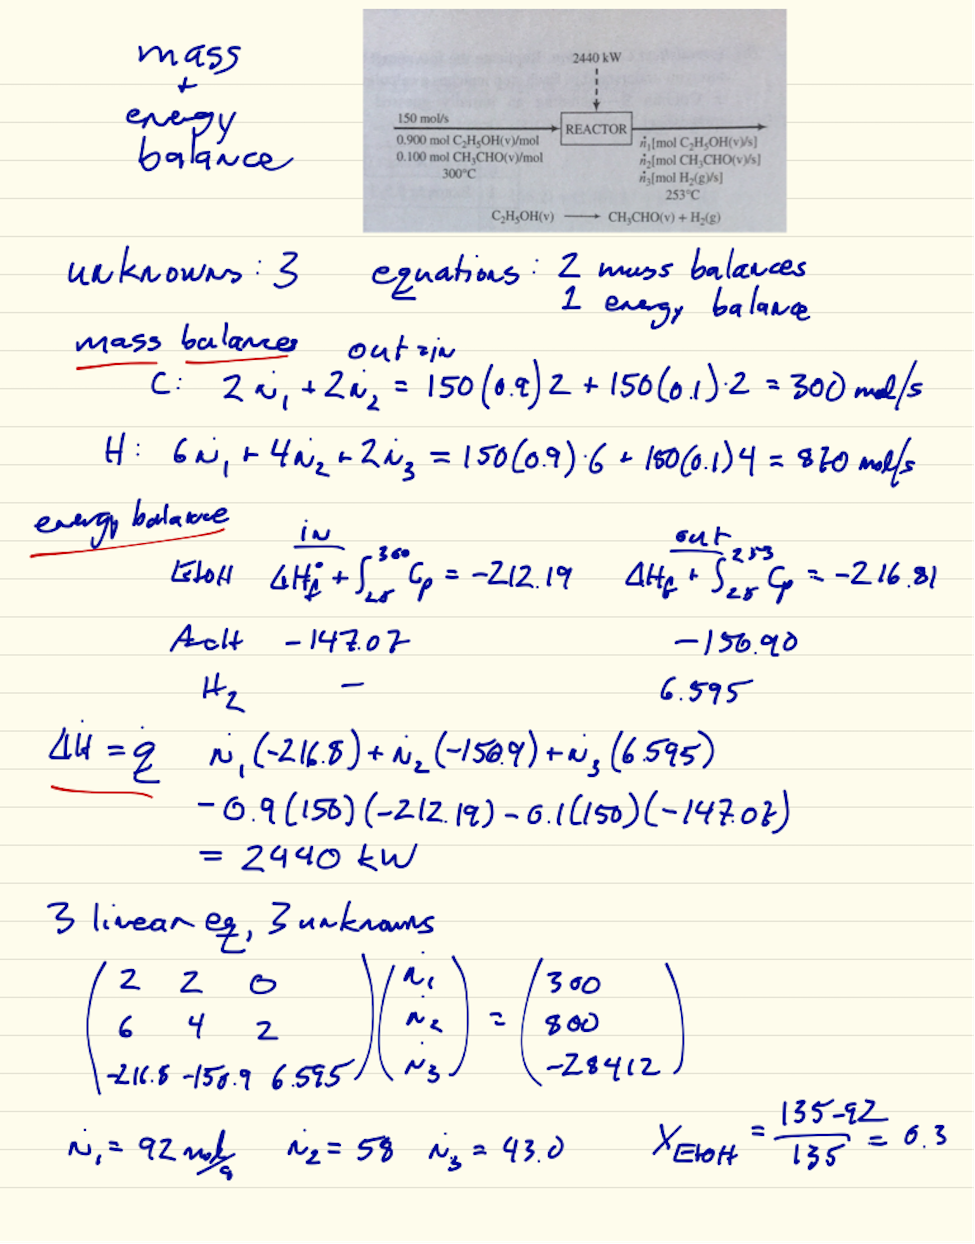 mass
+
energy
balance
2440 kW
150 mol/s
REACTOR
0.900 mol C₂H₅OH(v)/mol
0.100 mol CH₃CHO(v)/mol
300°C
ṅ₁[mol C₂H₅OH(v)/s]
ṅ₂[mol CH₃CHO(v)/s]
ṅ₃[mol H₂(g)/s]
253°C
C₂H₅OH(v) ⟶ CH₃CHO(v) + H₂(g)
unknowns: 3 equations: 2 mass balances
1 energy balance
mass balances out = in
C: 2ṅ₁ + 2ṅ₂ = 150(0.9)2 + 150(0.1)·2 = 300 mol/s
H: 6ṅ₁ + 4ṅ₂ + 2ṅ₃ = 150(0.9)·6 + 150(0.1)4 = 870 mol/s
energy balance in out
EtOH ΔH°f + ∫₂₅³⁰⁰ Cp = -212.19 ΔHf + ∫₂₅²⁵³ Cp = -216.81
AclH -147.07 -150.90
H₂ – 6.595
ΔḢ = q̇ ṅ₁(-216.8) + ṅ₂(-150.9) + ṅ₃(6.595)
-0.9(150)(-212.19) - 0.1(150)(-147.07)
= 2440 kW
3 linear eq, 3 unknowns
2 2 0 ṅ₁ 300
6 4 2 ṅ₂ = 800
-216.8 -150.9 6.595 ṅ₃ -28412
ṅ₁ = 92 mol/s ṅ₂ = 58 ṅ₃ = 43.0 X_EtOH = 135-92/135 = 0.3